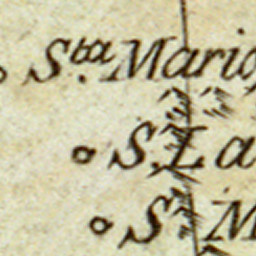 Sta. Maria
S. La
S. M